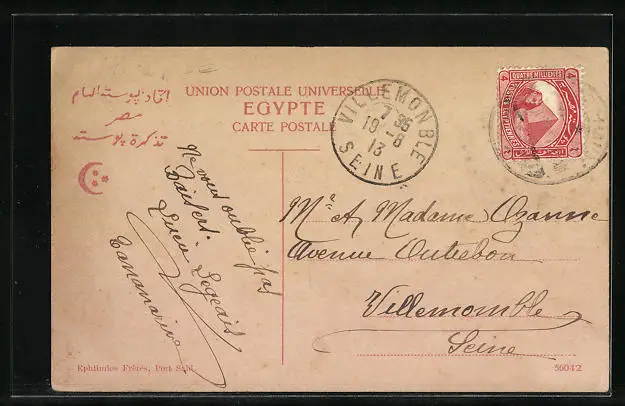 اتحاد پوسته العام
مصر
تذكرة پوسته
UNION POSTALE UNIVERSELLE
EGYPTE
CARTE POSTALE
VILLEMONBLE
7 35
19 - 8
13
SEINE
QUATRE MILLIEMES
4 4
Ne vous oublie pas
Baisers.
Lucie Legeais
Tamanarive
Mr et Madame Ozanne
Avenue Outrebon
Villemomble
Seine
Ephtimios Frères, Port Saïd
56042